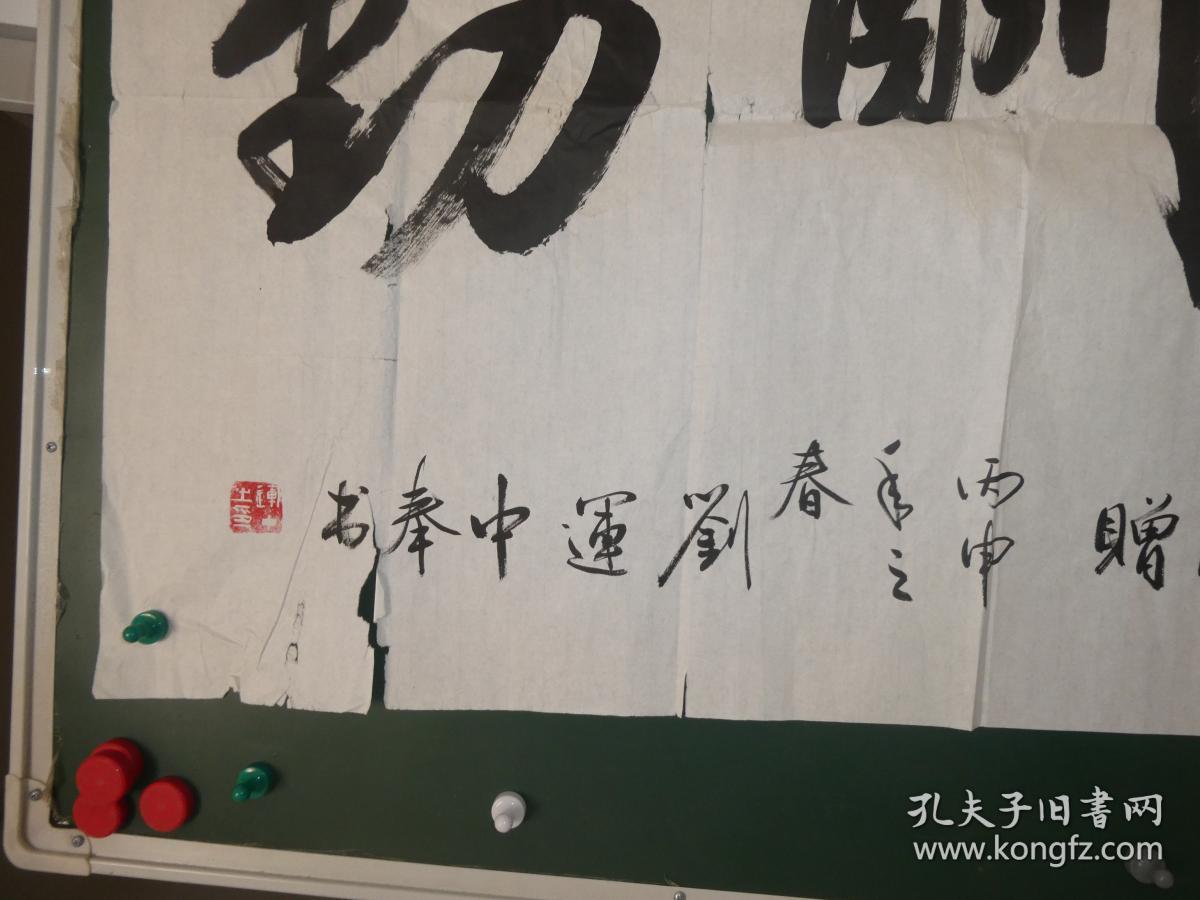 贈
丙申
年之
春
劉運中奉书
孔夫子旧書网
www.kongfz.com